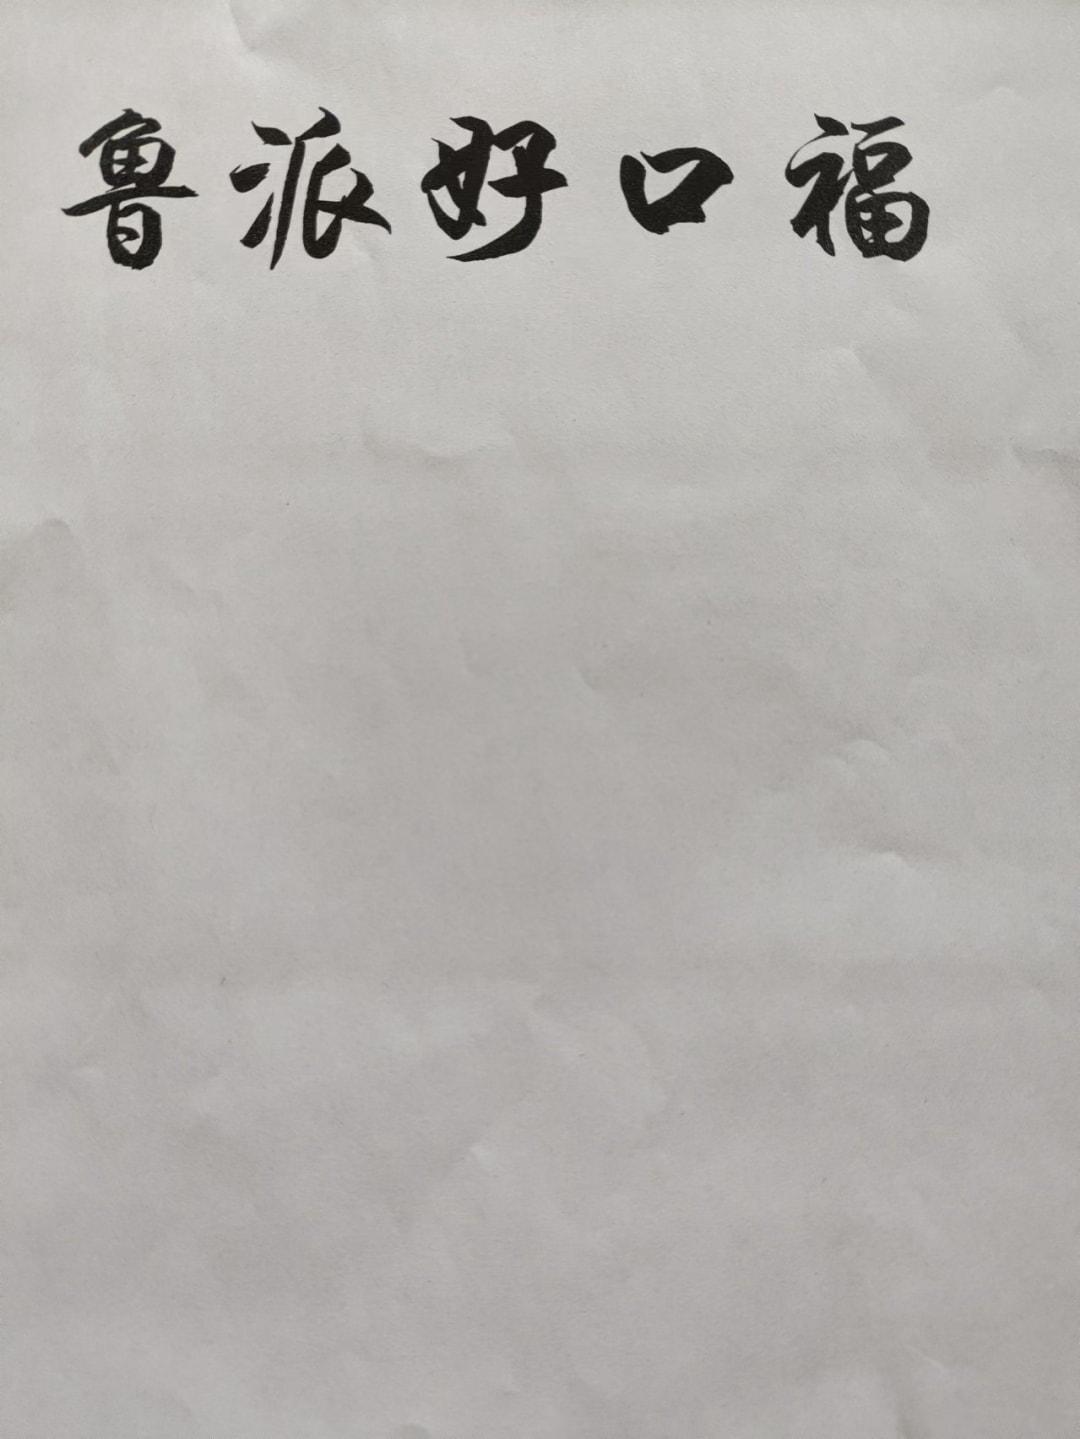 鲁派好口福